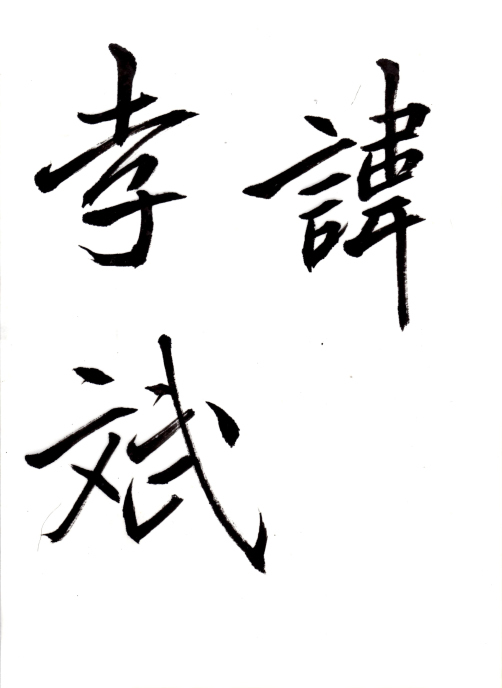 諱
孝斌